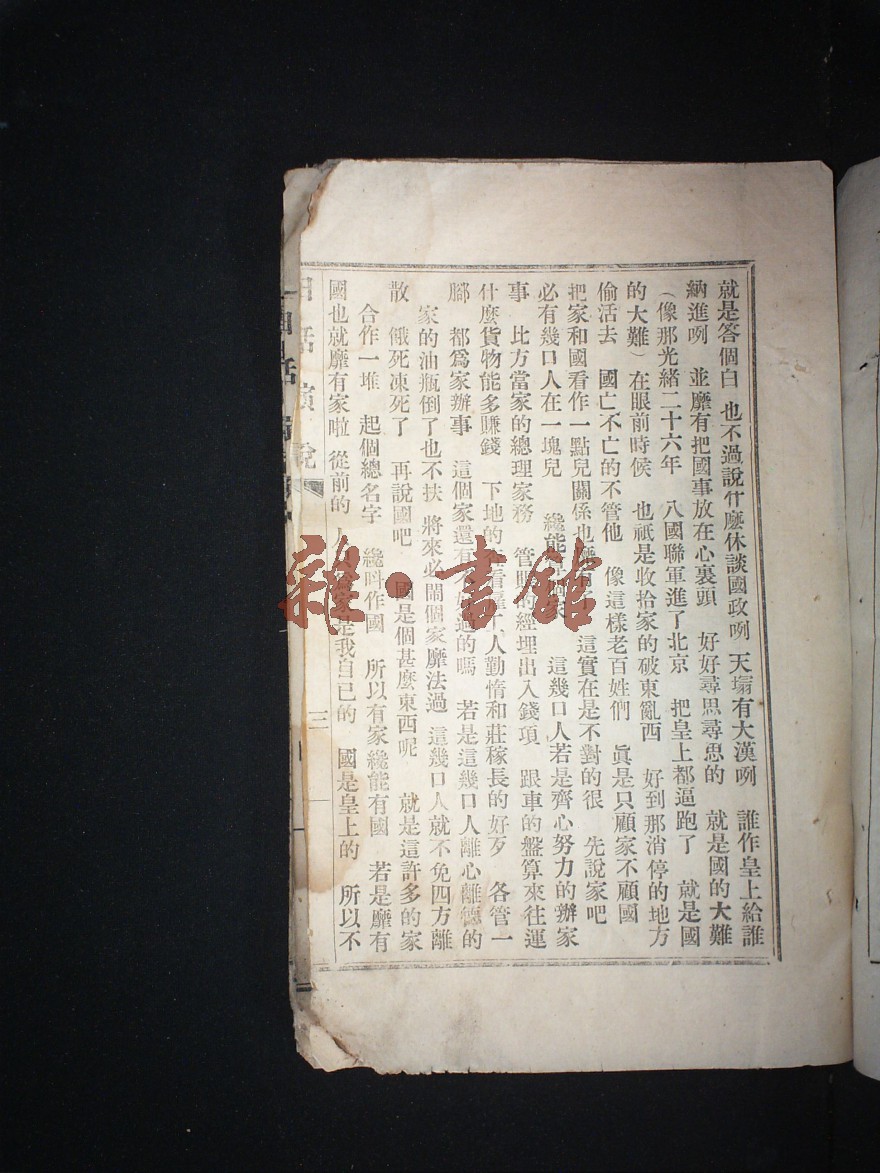 就是答個白　也不過說什麽休談國政咧　天塌有大漢咧　誰作皇上給誰
納進咧　並靡有把國事放在心裏頭　好好尋思尋思的　就是國的大難
（像那光緒二十六年　八國聯軍進了北京　把皇上都逼跑了　就是國
的大難）在眼前時候　也祇是收拾家的破東亂西　好到那消停的地方
偷活去　國亡不亡的不管他　像這樣老百姓們　眞是只顧家不顧國
把家和國看作一點兒關係也靡有了　這實在是不對的很　先說家吧
必有幾口人在一塊兒　纔能　這幾口人若是齊心努力的辦家
事　比方當家的總理家務　管賬的經理出入錢項　跟車的盤算來往運
什麼貨物能多賺錢　下地的　人勤惰和莊稼長的好歹　各管一
腳　都爲家辦事　這個家還有　過的嗎　若是這幾口人離心離德的
家的油瓶倒了也不扶　將來必鬧個家靡法過　這幾口人就不免四方離
散　餓死凍死了　再說國吧　國是個甚麽東西呢　就是這許多的家
合作一堆　起個總名字　纔呌作國　所以有家纔能有國　若是靡有
國也就靡有家啦　從前的　人　家是我自己的　國是皇上的　所以不
白話演說
三
雜·書館